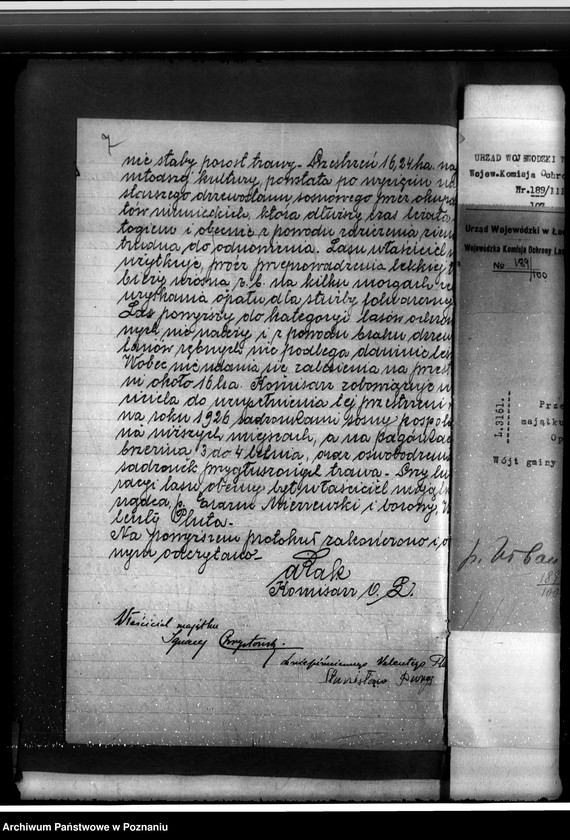 7
nie słaby porost trawy. Przestrzeń 16,24 ha. na
młodszej kultury, powstała po wycięciu
starszego drzewostanu sosnowego przez okupan
tów niemieckich, która dłuższy czas leżała
łogiem i obecnie z powodu zdziczenia ziemi
trudna do odnowienia. Lasu właściciel
użytkuje, prócz przeprowadzenia lekkiej
bieży wiosną r. b. na kilku morgach
uzyskania opału dla służby folwarcznej
Las powyższy do kategoryi lasów ochron
nych nie należy i z powodu braku drzew
tanów rębnych nie podlega daninie les
Wobec nie udania się zalesienia na przest
ni około 16 ha. Komisarz zobowiązuje
ciciela do uzupełnienia tej przestrzeni
na roku 1926 sadzonkami sosny pospol
na niższych miejscach, a na pagórkac
brzezina 3 do 4 letnia, oraz oswobodzenia
sadzonek przygłuszonych trawa. Przy lu
racji lasu obecny był właściciel mająt
rządca, p. Mierzewski i borowy
lenty Pluta.
Na powyższem protokuł zakończono i o
nym odczytano.
Rak
Komisarz O. L.
Właściciel majątku
Ignacy
Walentego Pl
Stanisław
URZĄD WOJEWÓDZKI
Wojew.Komisja Ochro
Nr.189/III
Urząd Wojewódzki w Ło
Wojewódzka Komisja Ochrony Las
No 189/100
L.3161.
Prze
majątku
Op
Wójt gminy
189
100
Archiwum Państwowe w Poznaniu